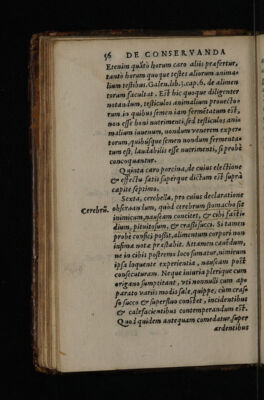 56 DE CONSERVANDA
Etenim quãtò horum caro aliis præfertur,
tantò horum quoque testes aliorum anima-
lium testibus. Galen. lib. 3. cap. 6. de alimen
torum facultat. Est hic quoque diligenter
notandum, testiculos animalium prouecto-
rum in quibus semen iam fermẽtatum est,
non esse boni nutrimenti, sed testiculos ani-
malium iuuenum, nondum venerem exper-
torum, quibusque semen nondum fermenta-
tum est, laudabilis esse nutrimenti, si probè
concoquantur.
Quinta caro porcina, de cuius electione
& effectu satis supérque dictum est suprà
capite septimo.
Sexta, cerebella, pro cuius declaratione
Cerebrũ. obseruandum, quòd cerebrum stomacho sit
inimicum, nauseam concitet, & cibi fasti-
dium, pituitosum, & crassi succi. Si tamen
probè confici possit, alimentum corpori non
infimæ notæ præstabit. Attamen cauẽdum,
ne in cibis postremo loco sumatur, nimirum
ipsa loquente experientia, nauseam post
consecuturam. Neque iniuria plerique cum
origano sumpsitant, vti nonnulli cum apo
parato variis modis sale, quippe, cùm cras-
so succo & superfluo constet, incidentibus
& calefacientibus contemperandum est.
Quod quidem antequam comedatur, super
ardentibus